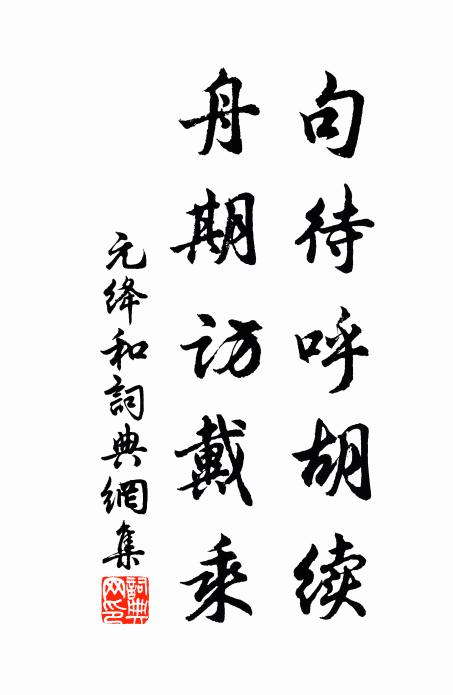 句待呼胡续
舟期访戴乘
元绛和詞典網集
詞典
网印